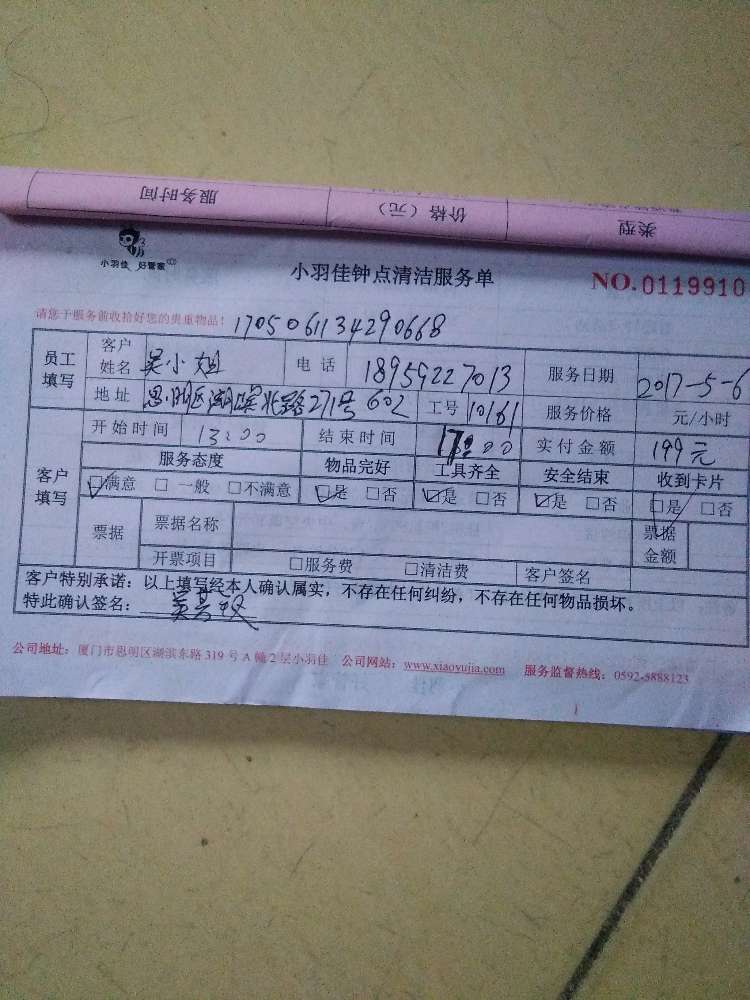 服务时间 价格（元） 类型
小羽佳 好管家
小羽佳钟点清洁服务单 NO.0119910
请您于服务前收拾好您的贵重物品！ 1705061134290668
员工填写 客户姓名 吴小姐 电话 18959227013 服务日期 2017-5-6
地址 思明区湖滨北路271号602 工号 10161 服务价格 元/小时
客户填写 开始时间 13:00 结束时间 17:00 实付金额 199元
服务态度 物品完好 工具齐全 安全结束 收到卡片
☑满意 □一般 □不满意 ☑是 □否 ☑是 □否 ☑是 □否 ☑是 □否
票据 票据名称 票据金额
开票项目 □服务费 □清洁费 客户签名
客户特别承诺：以上填写经本人确认属实，不存在任何纠纷，不存在任何物品损坏。
特此确认签名：
公司地址：厦门市思明区湖滨东路319号A幢2层小羽佳 公司网站：www.xiaoyujia.com 服务监督热线：0592-5888123